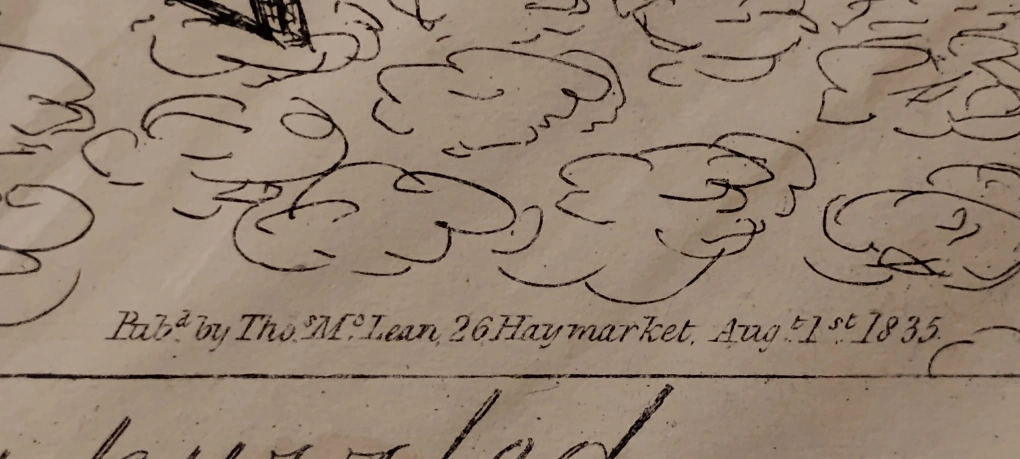 Pub.ᵈ by Tho.ˢ Mᶜ.Lean, 26 Haymarket. Aug.ᵗ 1ˢᵗ 1835.